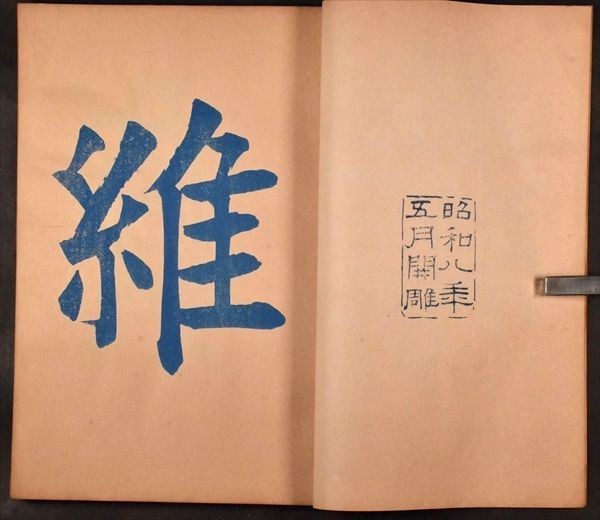 昭和八年
五月開雕
維